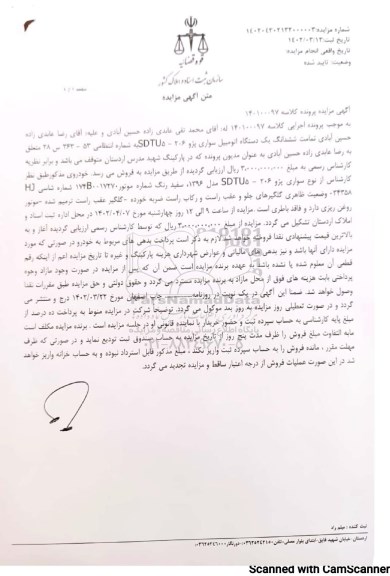 شماره مزایده: ۱۴۰۲۰۴۲۰۲۱۳۲۰۰۰۰۰۳
تاریخ ثبت: ۱۴۰۲/۰۳/۱۲
تاریخ واقعی انجام مزایده
وضعیت: تایید شده
قوه قضاییه
سازمان ثبت اسناد و املاک کشور
متن آگهی مزایده
آگهی مزایده پرونده کلاسه ۱۴۰۱۰۰۰۹۷
به موجب پرونده اجرایی کلاسه ۱۴۰۱۰۰۰۹۷ له، آقای محمد تقی عابدی زاده حسین آبادی و علیه: آقای رضا عابدی زاده
حسین آبادی تمامت ششدانگ یک دستگاه اتومبیل سواری پژو SDTU۵ - ۲۰۶ به شماره انتظامی ۵۳ - ۲۴۳ س ۲۸ متعلق
به رضا عابدی زاده حسین آبادی به عنوان مدیون پرونده که در پارکینگ شهید مدرس اردستان متوقف می باشد و برابر نظریه
کارشناس رسمی به مبلغ ۲,۰۰۰,۰۰۰,۰۰۰ ریال ارزیابی گردیده از طریق مزایده به فروش می رسد. خودروی مذکور طبق نظر
کارشناس از نوع سواری پژو SDTU۵ - ۲۰۶ مدل ۱۳۹۶، سفید رنگ شماره موتور ۱۷۴B۰۰۱۷۲۷۰ شماره شاسی HJ
۰۳۴۳۵۸ وضعیت ظاهری گلگیرهای جلو و عقب راست و رکاب راست ضربه خورده -گلگیر عقب راست ترمیم شده -موتور
روغن ریزی دارد و فاقد باطری است. مزایده از ساعت ۹ الی ۱۲ روز چهارشنبه مورخ ۱۴۰۲/۰۴/۰۷ در محل اداره ثبت اسناد و
املاک اردستان تشکیل می گردد. مزایده از مبلغ ۲,۰۰۰,۰۰۰,۰۰۰ ریال که توسط کارشناس رسمی ارزیابی گردیده آغاز و به
بالاترین قیمت پیشنهادی نقدا فروخته می شود. لازم به ذکر است پرداخت بدهی های مربوط به خودرو در صورتی که مورد
مزایده دارای آنها باشد و نیز بدهی های مالیاتی و عوارض شهرداری هزینه پارکینگ و غیره تا تاریخ مزایده اعم از اینکه رقم
قطعی آن معلوم شده یا نشده باشد به عهده برنده مزایده است ضمن آن که پس از مزایده در صورت وجود مازاد وجوه
پرداختی بابت هزینه های فوق از محل مازاد به برنده مزایده مسترد می گردد و حقوق دولتی و حق مزایده طبق مقررات نقدا
وصول خواهد شد. ضمنا این آگهی در یک نوبت در روزنامه اصفهان مورخ ۱۴۰۲/۰۳/۲۲ درج و منتشر می
گردد و در صورت تعطیلی روز مزایده به روز بعد موکول می گردد. توضیحا شرکت در مزایده منوط به پرداخت ده درصد از
مبلغ پایه کارشناسی به حساب سپرده ثبت و حضور خریدار یا نماینده قانونی او در جلسه مزایده است. برنده مزایده مکلف است
مابه التفاوت مبلغ فروش را ظرف مدت پنج روز از تاریخ مزایده به حساب صندوق ثبت تودیع نماید و در صورتی که ظرف
مهلت مقرر ، مانده فروش را به حساب سپرده ثبت واریز نکند ، مبلغ مذکور قابل استرداد نبوده و به حساب خزانه واریز خواهد
شد در این صورت عملیات فروش از درجه اعتبار ساقط و مزایده تجدید می گردد.
ثبت کننده : میثم راد
Scanned with CamScanner